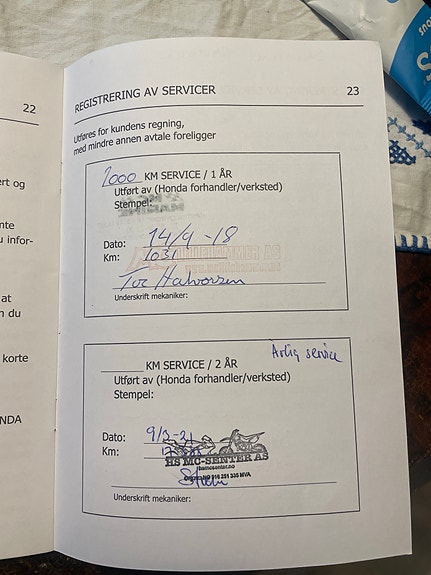 22
ert og
nte
u infor-
at
n du
korte
NDA
REGISTRERING AV SERVICER 23
Utføres for kundens regning,
med mindre annen avtale foreligger
1000 KM SERVICE / 1 ÅR
Utført av (Honda forhandler/verksted)
Stempel:
Dato: 14/9 -18
Km: 1037
Tor Halvorsen
Underskrift mekaniker:
Årlig service
KM SERVICE / 2 ÅR
Utført av (Honda forhandler/verksted)
Stempel:
Dato: 9/3-21
Km:
HS MC-SENTER AS
hsmcsenter.no
MVA
Underskrift mekaniker: